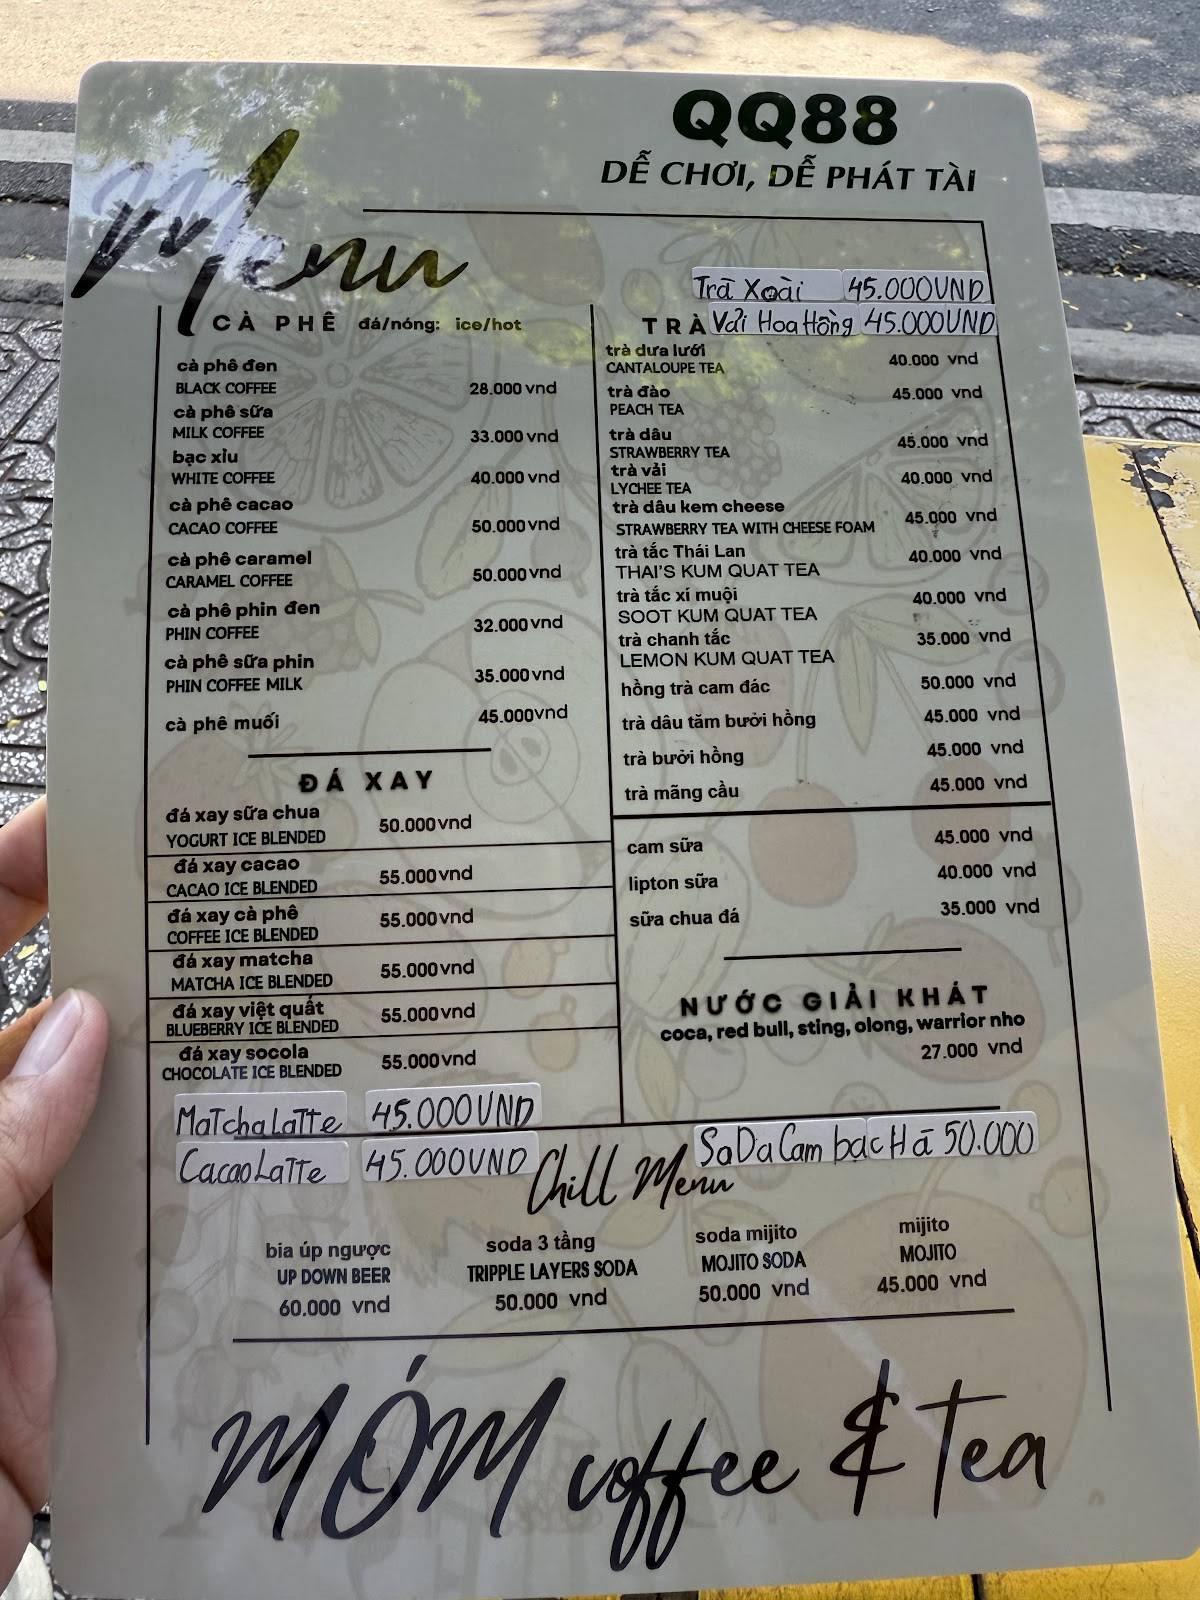 QQ88
DỄ CHƠI, DỄ PHÁT TÀI
Menu
CÀ PHÊ đá/nóng: ice/hot
cà phê đen
BLACK COFFEE 28.000 vnd
cà phê sữa
MILK COFFEE 33.000 vnd
bạc xỉu
WHITE COFFEE 40.000 vnd
cà phê cacao
CACAO COFFEE 50.000 vnd
cà phê caramel
CARAMEL COFFEE 50.000 vnd
cà phê phin đen
PHIN COFFEE 32.000 vnd
cà phê sữa phin
PHIN COFFEE MILK 35.000 vnd
cà phê muối 45.000 vnd
ĐÁ XAY
đá xay sữa chua
YOGURT ICE BLENDED 50.000 vnd
đá xay cacao
CACAO ICE BLENDED 55.000 vnd
đá xay cà phê
COFFEE ICE BLENDED 55.000 vnd
đá xay matcha
MATCHA ICE BLENDED 55.000 vnd
đá xay việt quất
BLUEBERRY ICE BLENDED 55.000 vnd
đá xay socola
CHOCOLATE ICE BLENDED 55.000 vnd
MaTchaLaTTe 45.000VND
CacaoLaTTe 45.000VND
Trà Xoài 45.000VND
TRÀ Vải Hoa Hồng 45.000VND
trà dưa lưới
CANTALOUPE TEA 40.000 vnd
trà đào
PEACH TEA 45.000 vnd
trà dâu
STRAWBERRY TEA 45.000 vnd
trà vải
LYCHEE TEA 40.000 vnd
trà dâu kem cheese
STRAWBERRY TEA WITH CHEESE FOAM 45.000 vnd
trà tắc Thái Lan
THAI'S KUM QUAT TEA 40.000 vnd
trà tắc xí muội
SOOT KUM QUAT TEA 40.000 vnd
trà chanh tắc
LEMON KUM QUAT TEA 35.000 vnd
hồng trà cam đác 50.000 vnd
trà dâu tăm bưởi hồng 45.000 vnd
trà bưởi hồng 45.000 vnd
trà mãng cầu 45.000 vnd
cam sữa 45.000 vnd
lipton sữa 40.000 vnd
sữa chua đá 35.000 vnd
NƯỚC GIẢI KHÁT
coca, red bull, sting, olong, warrior nho
27.000 vnd
Chill Menu
SoDa Cam bạc Hà 50.000
bia úp ngược
UP DOWN BEER
60.000 vnd
soda 3 tầng
TRIPPLE LAYERS SODA
50.000 vnd
soda mijito
MOJITO SODA
50.000 vnd
mijito
MOJITO
45.000 vnd
MÓM coffee & Tea